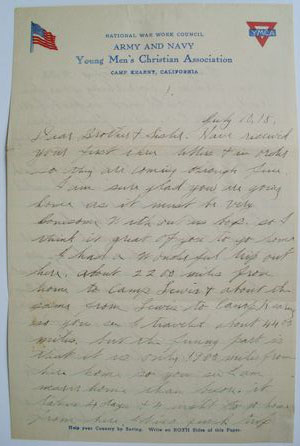 NATIONAL WAR WORK COUNCIL
ARMY AND NAVY
Young Men's Christian Association
CAMP KEARNY, CALIFORNIA
YMCA
1.
18.
Dear Brother & Sister. Have received
your first
so they are coming through fine
I am sure glad you are going
home as it must be very
lonesome without us boys. so I
think it great of you to go home
I had a wonderful trip out
here. about 2200 miles from
home to Camp Lewis & about the
same from Lewis to Camp Kearny
so you see I traveled about 4400
miles. but the funny part is
that it is only miles from
here home so you see I am
nearer home than before. it
takes days & nights to
from here, &
Help your Country by Saving. Write on BOTH Sides of this Paper.